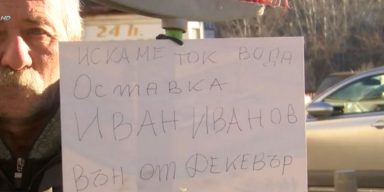 HD
24 h.
ИСКАМЕ ТОК ВОДА
ОСТАВКА
ИВАН ИВАНОВ
ВЪН ОТ ДКЕВЪР